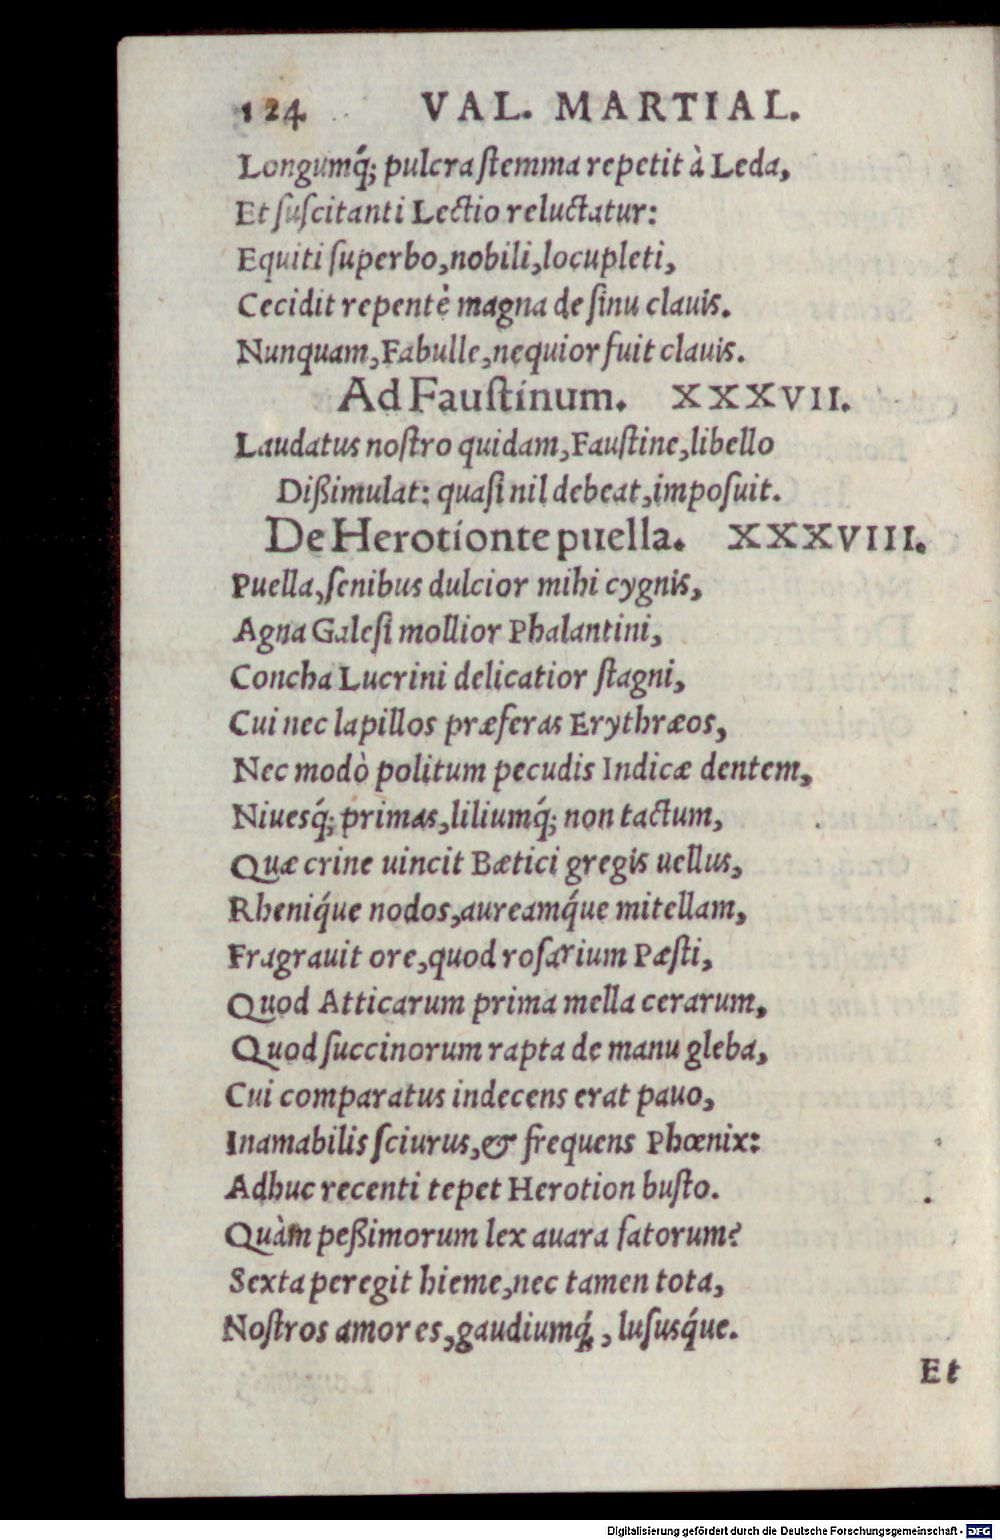 124 VAL. MARTIAL.
Longumq́; pulcra ſtemma repetit à Leda,
Et ſuſcitanti Lectio reluctatur:
Equiti ſuperbo, nobili, locupleti,
Cecidit repentè magna de ſinu clauis.
Nunquam, Fabulle, nequior fuit clauis.
Ad Fauſtinum. XXXVII.
Laudatus noſtro quidam, Fauſtine, libello
Dißimulat: quaſi nil debeat, impoſuit.
De Herotionte puella. XXXVIII.
Puella, ſenibus dulcior mihi cygnis,
Agna Galeſi mollior Phalantini,
Concha Lucrini delicatior ſtagni,
Cui nec lapillos præferas Erythræos,
Nec modò politum pecudis Indicæ dentem,
Niuesq́; primas, liliumq́; non tactum,
Quæ crine uincit Bætici gregis uellus,
Rheniq́ue nodos, aureamq́ue mitellam,
Fragrauit ore, quod roſarium Pæſti,
Quod Atticarum prima mella cerarum,
Quod ſuccinorum rapta de manu gleba,
Cui comparatus indecens erat pauo,
Inamabilis ſciurus, & frequens Phœnix:
Adhuc recenti tepet Herotion buſto.
Quàm peßimorum lex auara fatorum?
Sexta peregit hieme, nec tamen tota,
Noſtros amor es, gaudiumq́;, luſusq́ue.
Et
Digitalisierung gefördert durch die Deutsche Forschungsgemeinschaft - DFG